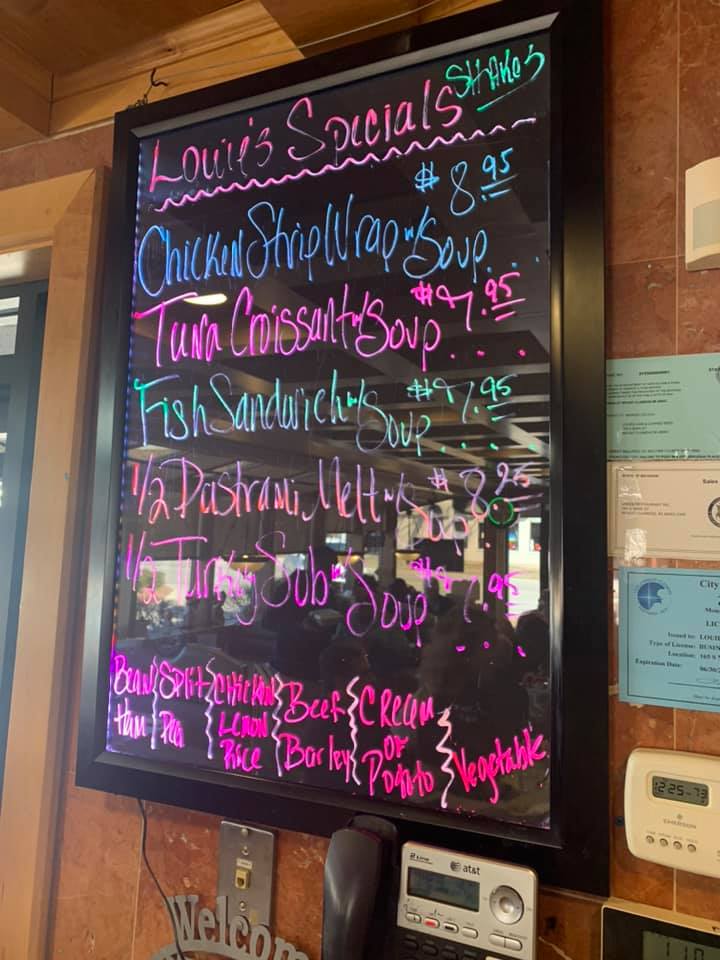 Shakes
Louie's Specials
$8.95
Chicken Strip Wrap w/ Soup....
Tuna Croissant w/ Soup $7.95
....
Fish Sandwich w/ Soup $7.95
....
1/2 Pastrami Melt w/ Soup $8.25
1/2 Turkey Sub w/ Soup $7.95
....
Bean Ham
Split Pea
Chicken Lemon Rice
Beef Barley
Cream of Potato
Vegetable
Sales
City
LIC
Issued to: LOUI
Type of License: BUSIN
Location: 165 S
Expiration Date: 06/30/2
12:25 73
EMERSON
2 LINE
at&t
Welcom